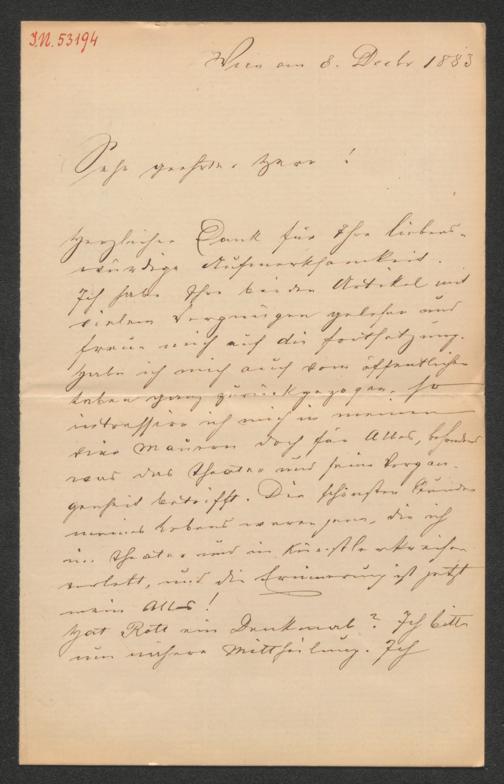 I.N. 53194
Wien am 8. Decbr 1883
Sehr geehrter Herr!
Herzlichen Dank für Ihre liebens-
würdige Aufmerksamkeit.
Ich habe Ihre beiden Artikel mit
vielem Vergnügen gelesen und
freue mich auf die Fortsetzung.
Habe ich mich auch vom öffentlichen
Leben ganz zurückgezogen, so
intressire ich mich in meinen
vier Mauern doch für Alles, besonders
was das Theater und seine Vergan-
genheit betrifft. Die schönsten Stunden
meines Lebens waren jene, die ich
im Theater und in Künstlerkreisen
verlebt, und die Erinnerung ist jetzt
mein Alles!
Hat Rott ein Denkmal? Ich bitte
um nähere Mittheilung. Ich